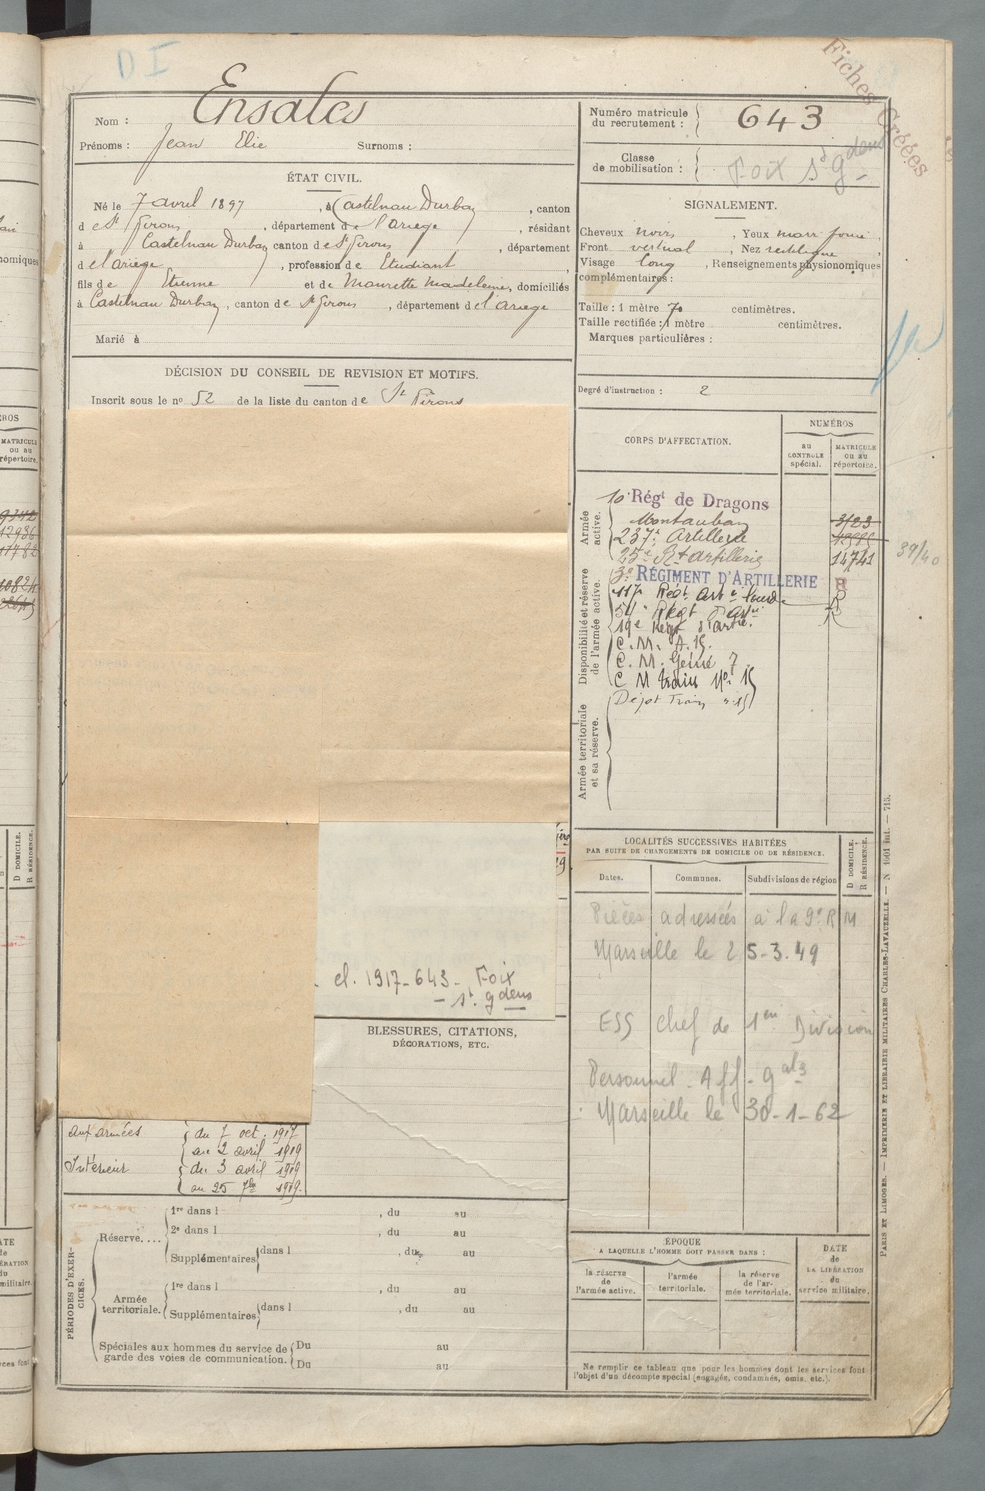 D I
Fiches Créées
Nom : Ensales
Prénoms : Jean Elie Surnoms :
Numéro matricule du recrutement : 643
Classe de mobilisation : Foix St gdens
ÉTAT CIVIL.
Né le 7 avril 1897, à Castelnau Durban, canton
de St Girons, département de l'ariège, résidant
à Castelnau Durban canton de St Girons, département
d el'ariege, profession de Etudiant,
fils de Etienne et de Maurette Madeleine, domiciliés
à Castelnau Durban, canton de St Girons, département de l'ariege
Marié à
SIGNALEMENT.
Cheveux noirs, Yeux marr foncé,
Front vertical, Nez rectiligne,
Visage long, Renseignements physionomiques
complémentaires :
Taille : 1 mètre 70 centimètres.
Taille rectifiée : 1 mètre centimètres.
Marques particulières :
Degré d'instruction : 2
DÉCISION DU CONSEIL DE REVISION ET MOTIFS.
Inscrit sous le no 52 de la liste du canton de St Girons
CORPS D'AFFECTATION.
NUMÉROS
au CONTROLE spécial.
MATRICULE ou au répertoire.
Armée active.
10e Régt de Dragons
Montauban
237e Artillerie
25e Rt artillerie 14741
39/40
Disponibilité et réserve de l'armée active.
3e RÉGIMENT D'ARTILLERIE R
117e Régt. Art ie lourde
54e Régt d'Art ie
19e Régt d'artie.
C. M. A. 15.
C. M. Génie 7
C M train No 15
Dépot Train n. 15
Armée territoriale et sa réserve.
LOCALITÉS SUCCESSIVES HABITÉES
PAR SUITE DE CHANGEMENTS DE DOMICILE OU DE RÉSIDENCE.
D DOMICILE.
R RÉSIDENCE.
Dates. Communes. Subdivisions de région
Pièces adressées à la 9e R M
Marseille le 25-3.49
ESS chef de 1ère Division
Personnel. Aff. gales
Marseille le 30-1-62
cl. 1917-643- Foix
- St. gdens
BLESSURES, CITATIONS,
DÉCORATIONS, ETC.
aux armées du 7 oct. 1917
au 2 avril 1919
Intérieur du 3 avril 1919
au 25 7bre 1919.
PÉRIODES D'EXERCICES.
Réserve.... 1re dans l , du au
2e dans l , du au
Supplémentaires dans l , du au
Armée territoriale. 1re dans l , du au
Supplémentaires dans l , du au
Spéciales aux hommes du service de garde des voies de communication. Du au
Du au
ÉPOQUE
A LAQUELLE L'HOMME DOIT PASSER DANS :
la réserve de l'armée active.
l'armée territoriale.
la réserve de l'armée territoriale.
DATE de LA LIBÉRATION du service militaire.
Ne remplir ce tableau que pour les hommes dont les services font
l'objet d'un décompte spécial (engagés, condamnés, omis, etc.).
PARIS ET LIMOGES. — IMPRIMERIE ET LIBRAIRIE MILITAIRES CHARLES-LAVAUZELLE. — N 1601 int. — 715.